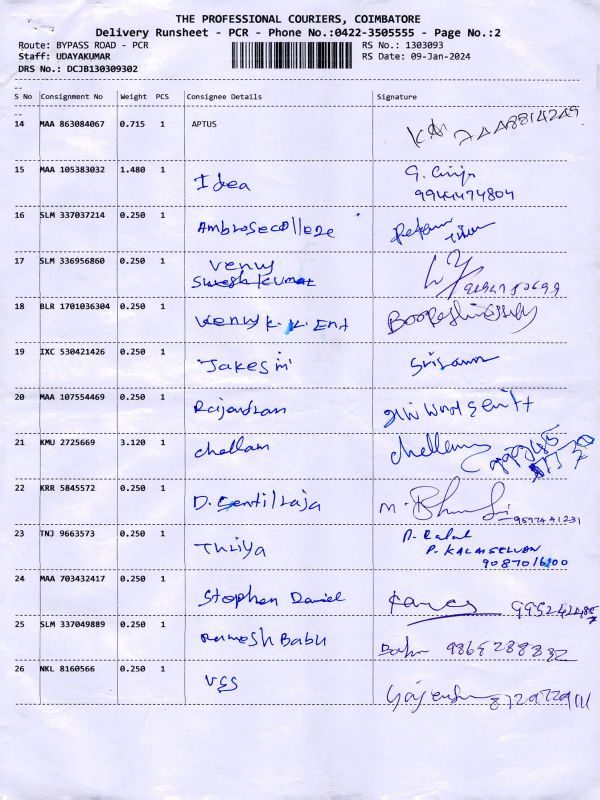 THE PROFESSIONAL COURIERS, COIMBATORE
Delivery Runsheet - PCR - Phone No.:0422-3505555 - Page No.:2
Route: BYPASS ROAD - PCR RS No.: 1303093
Staff: UDAYAKUMAR RS Date: 09-Jan-2024
DRS No.: DCJB130309302
S No Consignment No Weight PCS Consignee Details Signature
14 MAA 863084067 0.715 1 APTUS
15 MAA 105383032 1.480 1 Idea G.
9944474804
16 SLM 337037214 0.250 1 Ambrose college
17 SLM 336956860 0.250 1 Venu
Suresh Kumar
18 BLR 1701036304 0.250 1 Venu K. K. Ent
19 IXC 530421426 0.250 1 Jakes m
20 MAA 107554469 0.250 1 Rajandran
21 KMU 2725669 3.120 1 chellam chellam
22 KRR 5845572 0.250 1 D. Sentil raja M.
9597441231
23 TNJ 9663573 0.250 1 Thliya
P. KALAISELVAN
9087016100
24 MAA 703432417 0.250 1 Stephen Daniel
25 SLM 337049889 0.250 1 Ramesh Babu 9865288882
26 NKL 8160566 0.250 1 VGS